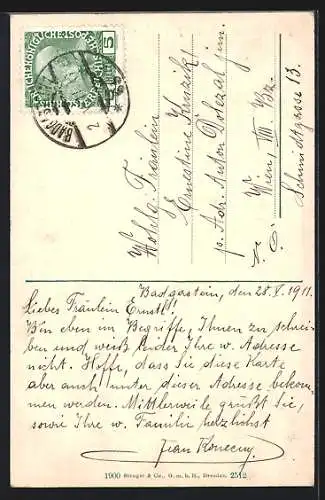 5
Wohlg. Fräulein
Ernestine
p. Adr. Anton Dolezal jun.
Wien, VIII. Bz.
Schmidtgasse 13.
Badgastein, den 28. V. 1911.
Liebes Fräulein Ernstl!
Bin eben im Begriffe, Ihnen zu schrei-
ben und weiß leider Ihre w. Adresse
nicht. Hoffe, dass Sie diese Karte
aber auch unter dieser Adresse bekom-
men werden. Mittlerweile grüßt Sie,
sowie Ihre w. Familie herzlichst
Jean Konecny
1900 Stengel & Co., G. m. b. H., Dresden. 2512